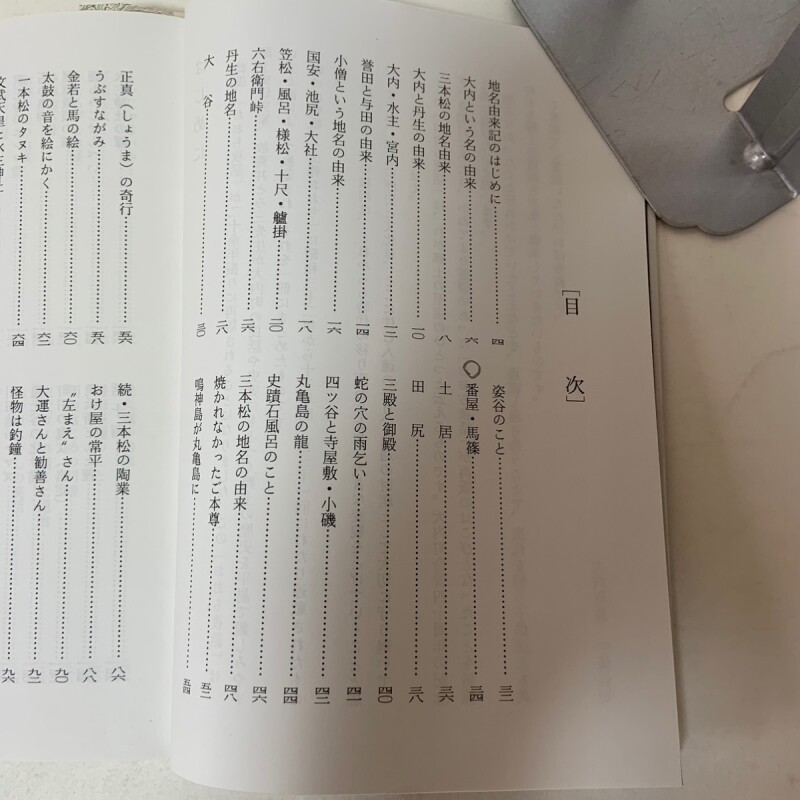 [目次]
地名由来記のはじめに………四
大内という名の由来………六
三本松の地名由来………八
大内と丹生の由来………一〇
大内・水主・宮内………一二
誉田と与田の由来………一四
小僧という地名の由来………一六
国安・池尻・大社………一八
笠松・風呂・様松・十尺・艫掛………二〇
六右衛門峠………二六
丹生の地名………二八
大谷………三〇
姿谷のこと………三二
〇番屋・馬篠………三四
土居………三六
田尻………三八
三殿と御殿………四〇
蛇の穴の雨乞い………四一
四ッ谷と寺屋敷・小磯………四三
丸亀島の龍………四四
史蹟石風呂のこと………四六
三本松の地名の由来………四八
焼かれなかったご本尊………五二
鳴神島が丸亀島に………五四
正真(しょうま)の奇行………五六
うぶすながみ………五八
金若と馬の絵………六〇
太鼓の音を絵にかく………六二
一本松のタヌキ………六四
続・三本松の陶業………八六
おけ屋の常平………八八
"左まえ"さん………九〇
大運さんと勧善さん………九二
怪物は釣鐘………九六